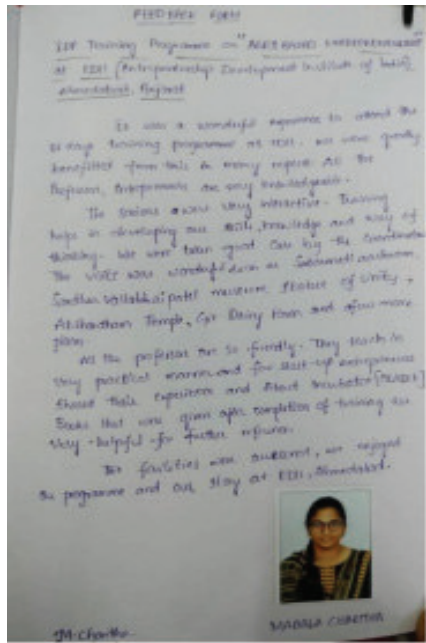 FEEDBACK FORM
Training Programme on "
at EDII (Entrepreneurship Development Institute of India),
Ahmedabad, Gujarat
It was a wonderful experience to attend the
days training programme at EDII. We were greatly
benefitted from this in many All the
Professors, Entrepreneurs are very knowledgeable.
The sessions were very interactive. Training
helps in developing our skills, knowledge and way of
thinking. We were taken good care by the coordinators
The visits was wonderful Sabarmati aashram,
Sardhar vallabhai patel museum, Statue of Unity,
Akshardham Temple, Dairy and few more
places
All the professor are so friendly. They teach in
very practical manner and for start-up entrepreneurs
shared their experiences and about incubator
Books that were given after completion of training are
very helpful for further
The facilities were we enjoyed
the programme and our stay at EDII, Ahmedabad.
M. Charitha
MADALA CHARITHA